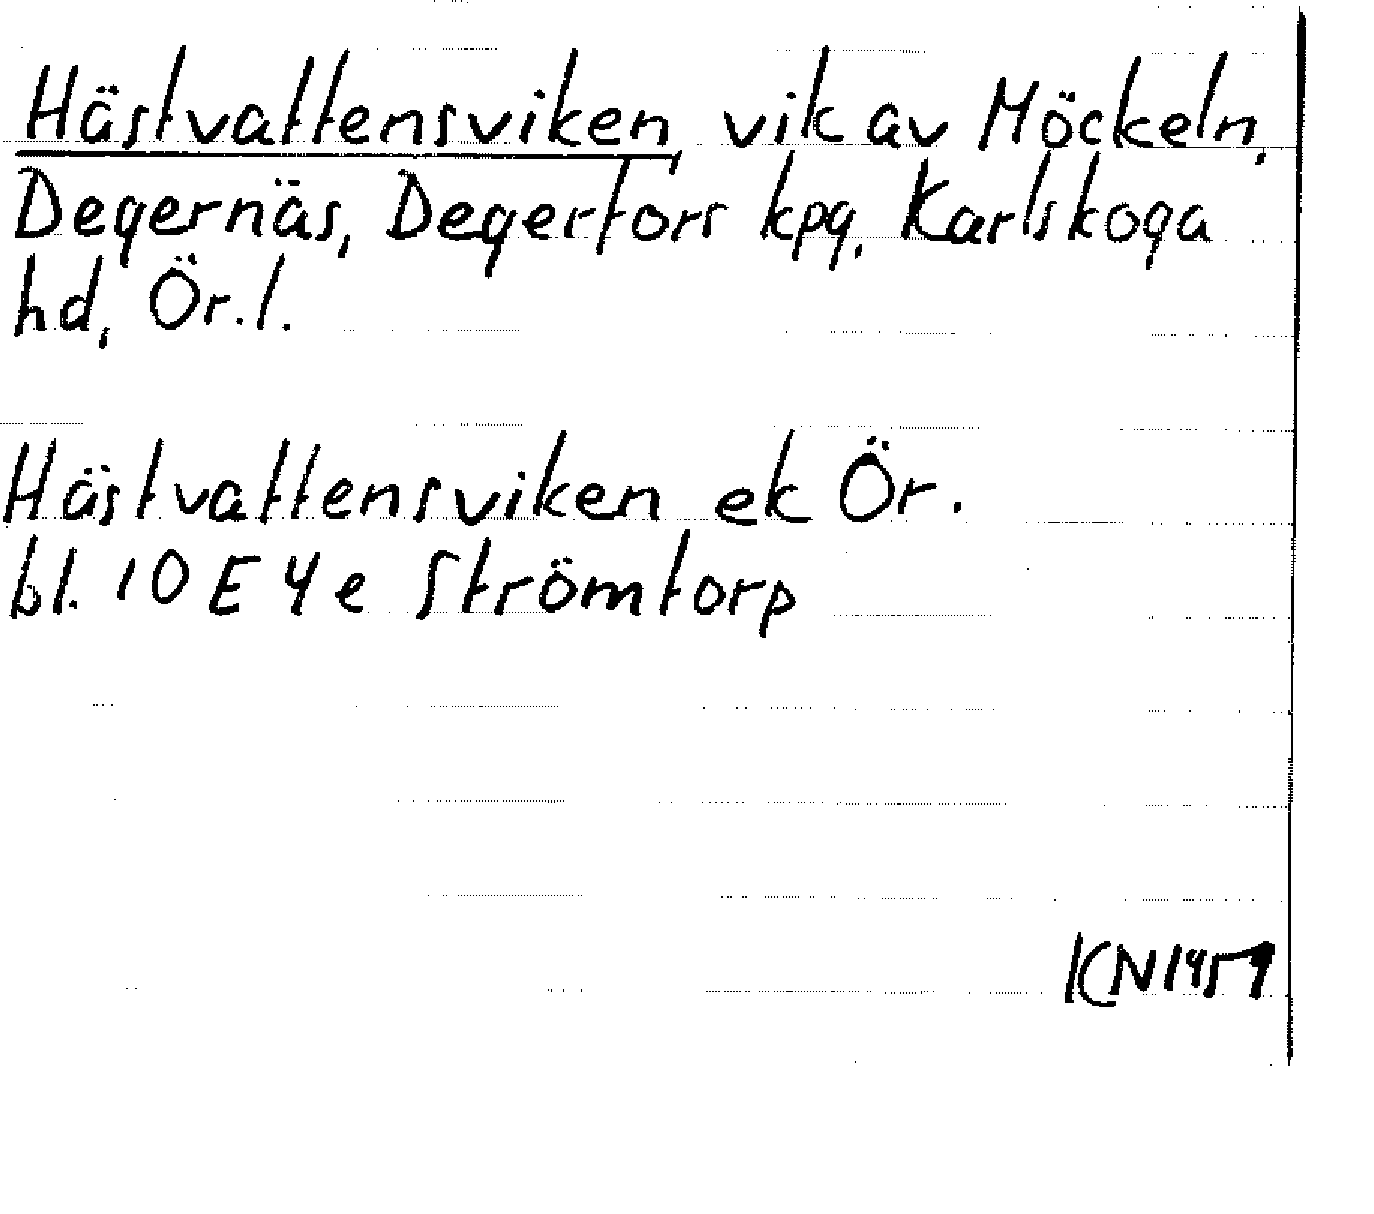 Hästvattensviken, vik av Möckeln,
Degernäs, Degerfors kpg, Karlskoga
hd, Ör.l.
Hästvattensviken ek Ör.
bl. 10 E 4e Strömtorp